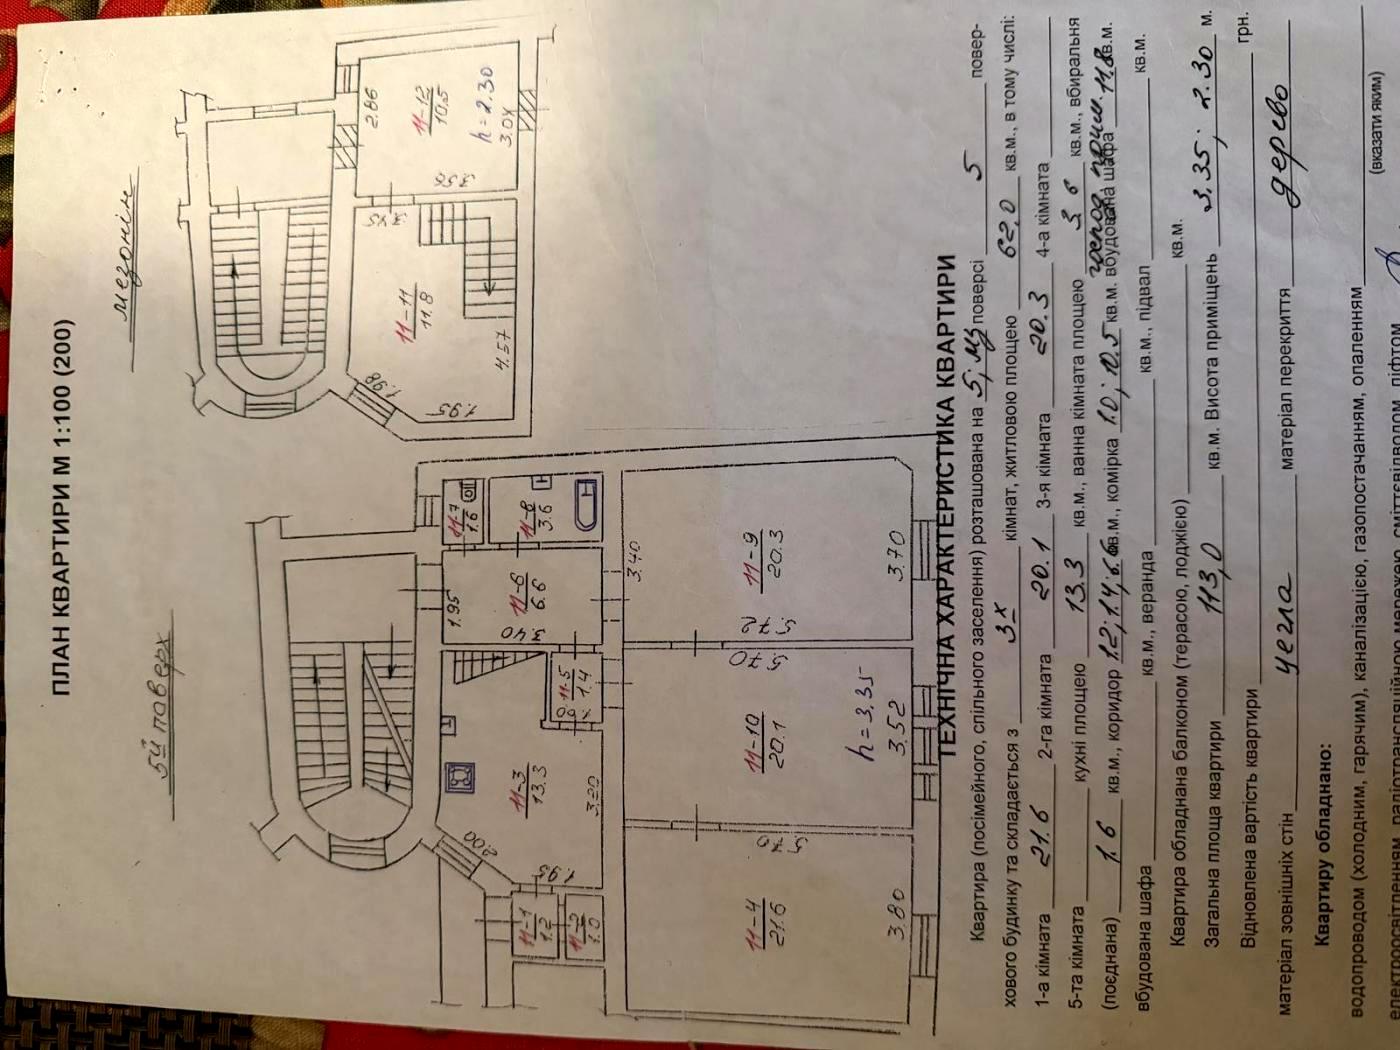 ПЛАН КВАРТИРИ М 1:100 (200)
5й поверх
мезонін
1.95
11-7
1.6
11-8
3.6
11-6
6.6
3.40
11-5
1.4
11-3
13.3
3.20
2.00
1.95
11-1
1.2
11-2
1.0
3.40
11-9
20.3
5.72
3.70
5.70
11-10
20.1
h=3,35
3.52
5.70
11-4
21.6
3.80
2.86
11-12
10.5
h=2.30
3.04
11-11
11.8
4.57
1.98
1.95
ТЕХНІЧНА ХАРАКТЕРИСТИКА КВАРТИРИ
Квартира (посімейного, спільного заселення) розташована на 5; мз поверсі 5 повер-
хового будинку та складається з 3х кімнат, житловою площею 62,0 кв.м., в тому числі:
1-а кімната 21.6 2-га кімната 20.1 3-я кімната 20.3 4-а кімната
5-та кімната кухні площею 13.3 кв.м., ванна кімната площею 3.6 кв.м., вбиральня
(поєднана) 1.6 кв.м., коридор 1.2; 1.4; 6.6 кв.м., комірка 1.0; 10.5 кв.м. вбудована шафа господ. прим. 11.8 кв.м.
вбудована шафа кв.м., веранда кв.м., підвал кв.м.
Квартира обладнана балконом (терасою, лоджією) кв.м.
Загальна площа квартири 113,0 кв.м. Висота приміщень 3.35; 2.30 м.
Відновлена вартість квартири грн.
матеріал зовнішніх стін цегла матеріал перекриття дерево
Квартиру обладнано: (вказати яким)
водопроводом (холодним, гарячим), каналізацією, газопостачанням, опаленням
електроосвітленням, радіотрансляційною мережею, сміттєвідводом, ліфтом